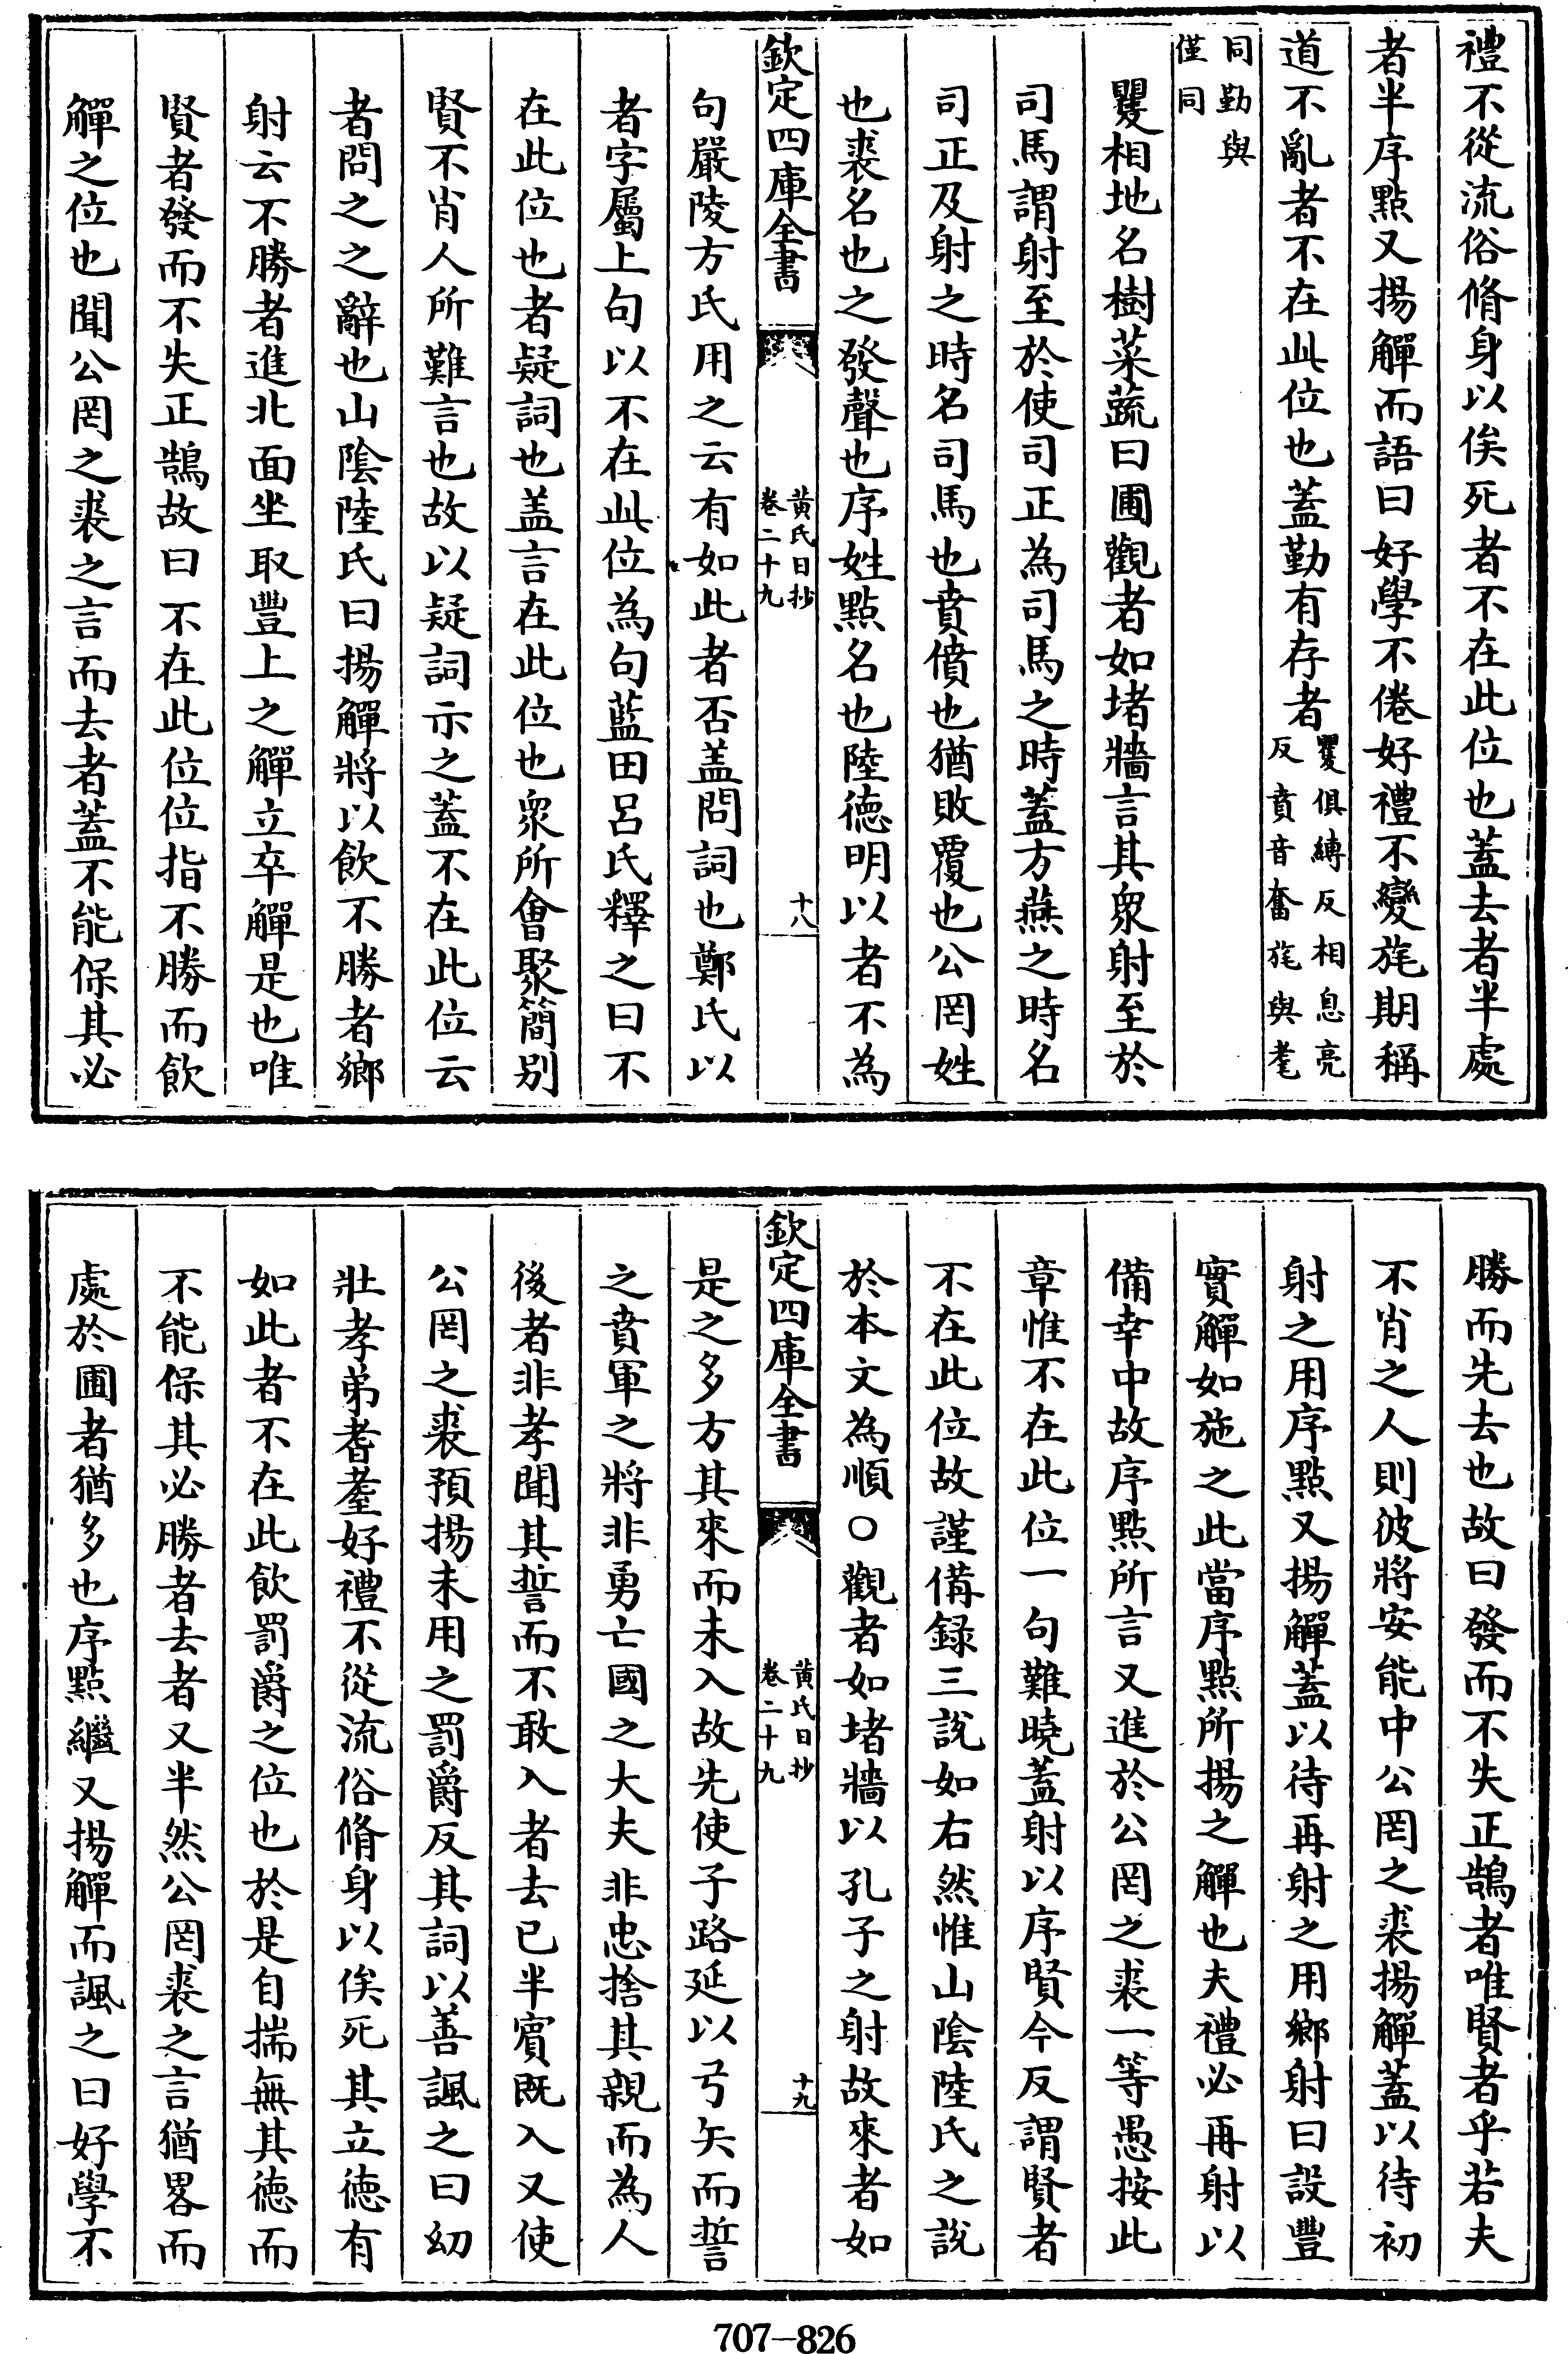 禮不從流俗脩身以俟死者不在此位也蓋去者半處
者半序點又揚觶而語曰好學不倦好禮不變旄期稱
道不亂者不在此位也蓋勤有存者矍俱縛反相息亮
反賁音奮旄與耄
同勤與
僅同
矍相地名樹菜蔬曰圃觀者如堵牆言其衆射至於
司馬謂射至於使司正為司馬之時蓋方燕之時名
司正及射之時名司馬也賁僨也猶敗覆也公罔姓
也裘名也之發聲也序姓點名也陸德明以者不為
欽定四庫全書
黃氏日抄
卷二十九
十八
句嚴陵方氏用之云有如此者否蓋問詞也鄭氏以
者字屬上句以不在此位為句藍田呂氏釋之曰不
在此位也者疑詞也蓋言在此位也衆所會聚簡別
賢不肖人所難言也故以疑詞示之蓋不在此位云
者問之之辭也山陰陸氏曰揚觶將以飲不勝者鄉
射云不勝者進北面坐取豐上之觶立卒觶是也唯
賢者發而不失正鵠故曰不在此位位指不勝而飲
觶之位也聞公罔之裘之言而去者蓋不能保其必
勝而先去也故曰發而不失正鵠者唯賢者乎若夫
不肖之人則彼將安能中公罔之裘揚觶蓋以待初
射之用序點又揚觶蓋以待再射之用鄉射曰設豐
實觶如施之此當序點所揚之觶也夫禮必再射以
備幸中故序點所言又進於公罔之裘一等愚按此
章惟不在此位一句難曉蓋射以序賢今反謂賢者
不在此位故謹備録三說如右然惟山陰陸氏之說
於本文為順○觀者如堵牆以孔子之射故來者如
欽定四庫全書
黃氏日抄
卷二十九
十九
是之多方其來而未入故先使子路延以弓矢而誓
之賁軍之將非勇亡國之大夫非忠捨其親而為人
後者非孝聞其誓而不敢入者去已半賓既入又使
公罔之裘預揚未用之罰爵反其詞以善諷之曰幼
壯孝弟耆耋好禮不從流俗脩身以俟死其立德有
如此者不在此飲罰爵之位也於是自揣無其德而
不能保其必勝者去者又半然公罔裘之言猶畧而
處於圃者猶多也序點繼又揚觶而諷之曰好學不
707-826